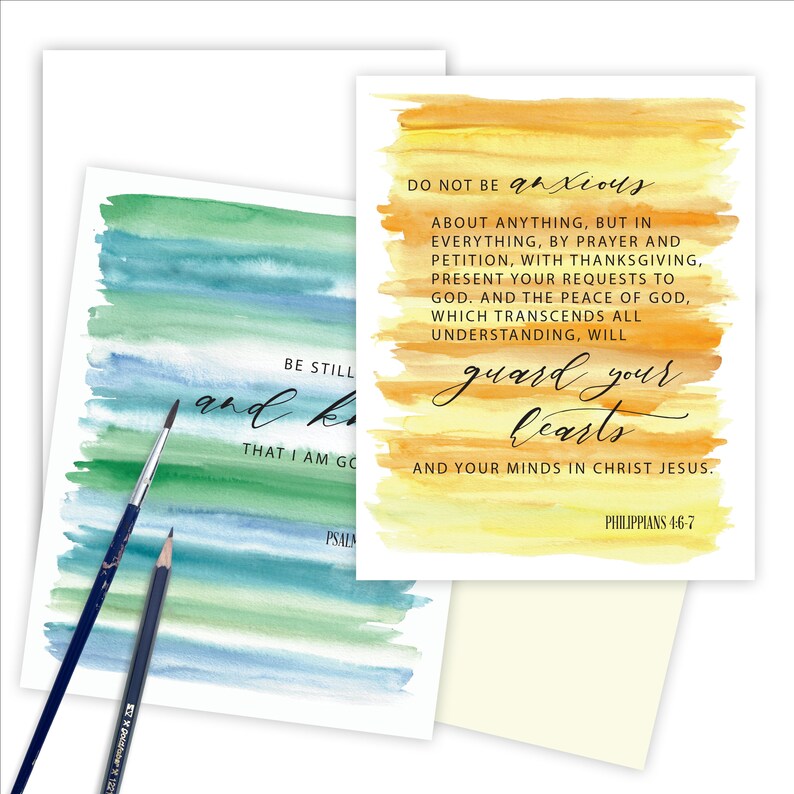 BE STILL
and kn
THAT I AM GO
PSALM
DO NOT BE anxious
ABOUT ANYTHING, BUT IN
EVERYTHING, BY PRAYER AND
PETITION, WITH THANKSGIVING,
PRESENT YOUR REQUESTS TO
GOD. AND THE PEACE OF GOD,
WHICH TRANSCENDS ALL
UNDERSTANDING, WILL
guard your
hearts
AND YOUR MINDS IN CHRIST JESUS.
PHILIPPIANS 4:6-7